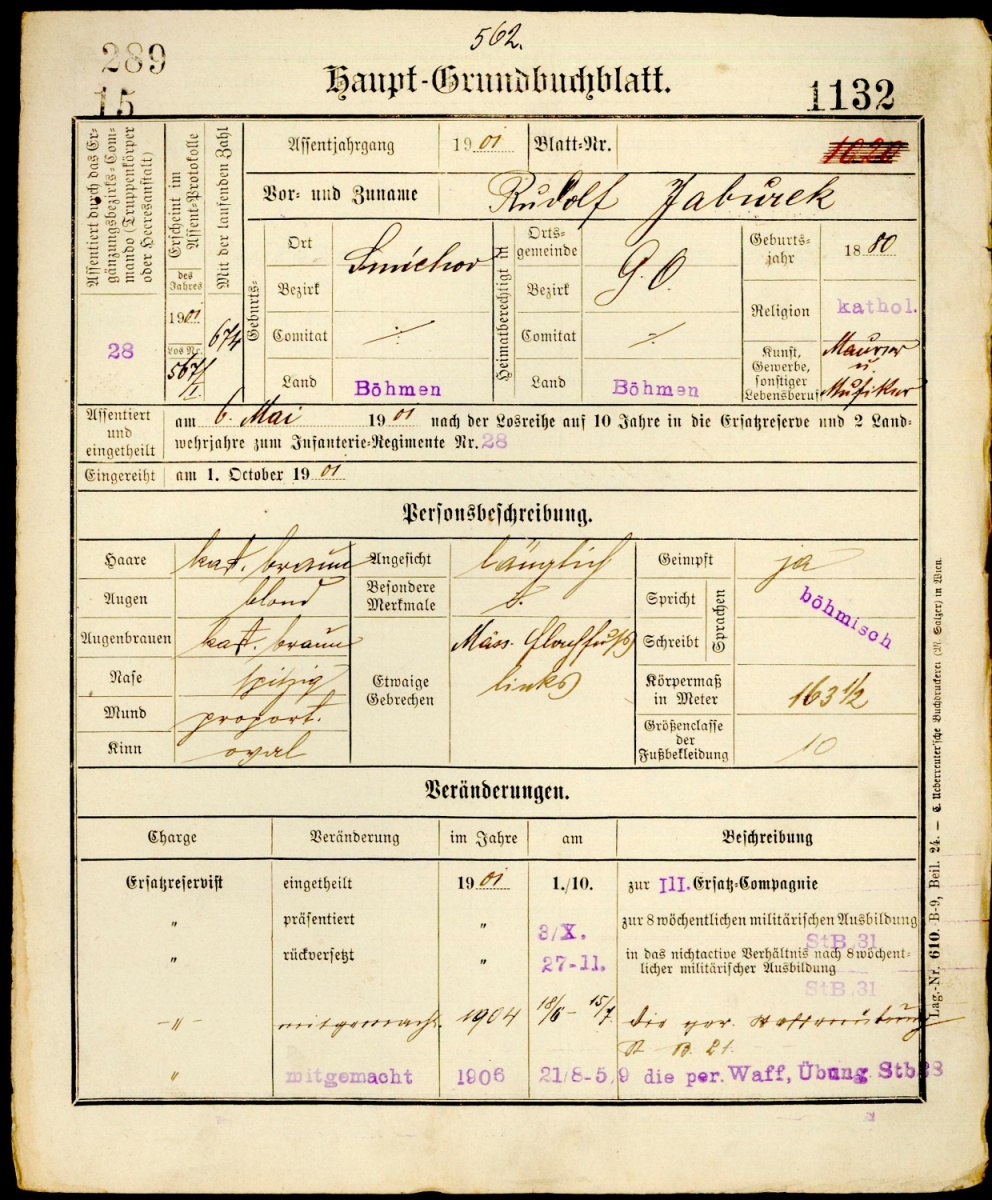 562.
289
15
Haupt-Grundbuchblatt.
1132
Assentiert durch das Er-
gänzungsbezirks-Com-
mando (Truppenkörper
oder Heeresanstalt)
28
Erscheint im
Assent-Protokolle
des
Jahres
1901
Los Nr.
567/I.
Mit der laufenden Zahl
674
Assentjahrgang 1901 Blatt-Nr.
1020
Vor- und Zuname Rudolf Jaburek
Geburts-
Ort
Smichov
Bezirk
Comitat ÷
Land Böhmen
Heimatberechtigt in
Orts-
gemeinde
G. O.
Bezirk
Comitat ÷
Land Böhmen
Geburts-
jahr 1880
Religion kathol.
Kunst,
Gewerbe,
sonstiger
Lebensberuf
Maurer
u.
Musiker
Assentiert
und
eingetheilt
am 6. Mai 1901 nach der Losreihe auf 10 Jahre in die Ersatzreserve und 2 Land-
wehrjahre zum Infanterie-Regimente Nr. 28
Eingereiht am 1. October 1901
Personsbeschreibung.
Haare kast. braun
Augen blond
Augenbrauen kast. braun
Nase spitzig
Mund proport.
Kinn oval
Angesicht länglich
Besondere
Merkmale
Etwaige
Gebrechen
Mäss. Plattfuß
links
Geimpft ja
Spricht
Schreibt
Sprachen
böhmisch
Körpermaß
in Meter 163 1/2
Größenclasse
der
Fußbekleidung 10
Veränderungen.
Charge Veränderung im Jahre am Beschreibung
Ersatzreservist eingetheilt 1901 1./10. zur III. Ersatz-Compagnie
" präsentiert " 3/X. zur 8 wöchentlichen militärischen Ausbildung
StB.31
" rückversetzt " 27-11. in das nichtactive Verhältnis nach 8 wöchent-
licher militärischer Ausbildung
StB.31
-"- mitgemacht 1904 18/6 - 15/7. die per. Waffenübung
St. B. 21.
" mitgemacht 1906 21/8-5/9 die per. Waff, Übung Stb38
Lag.-Nr. 610. B-9, Beil. 24. — C. Ueberreuter'sche Buchdruckerei (M. Salzer) in Wien.